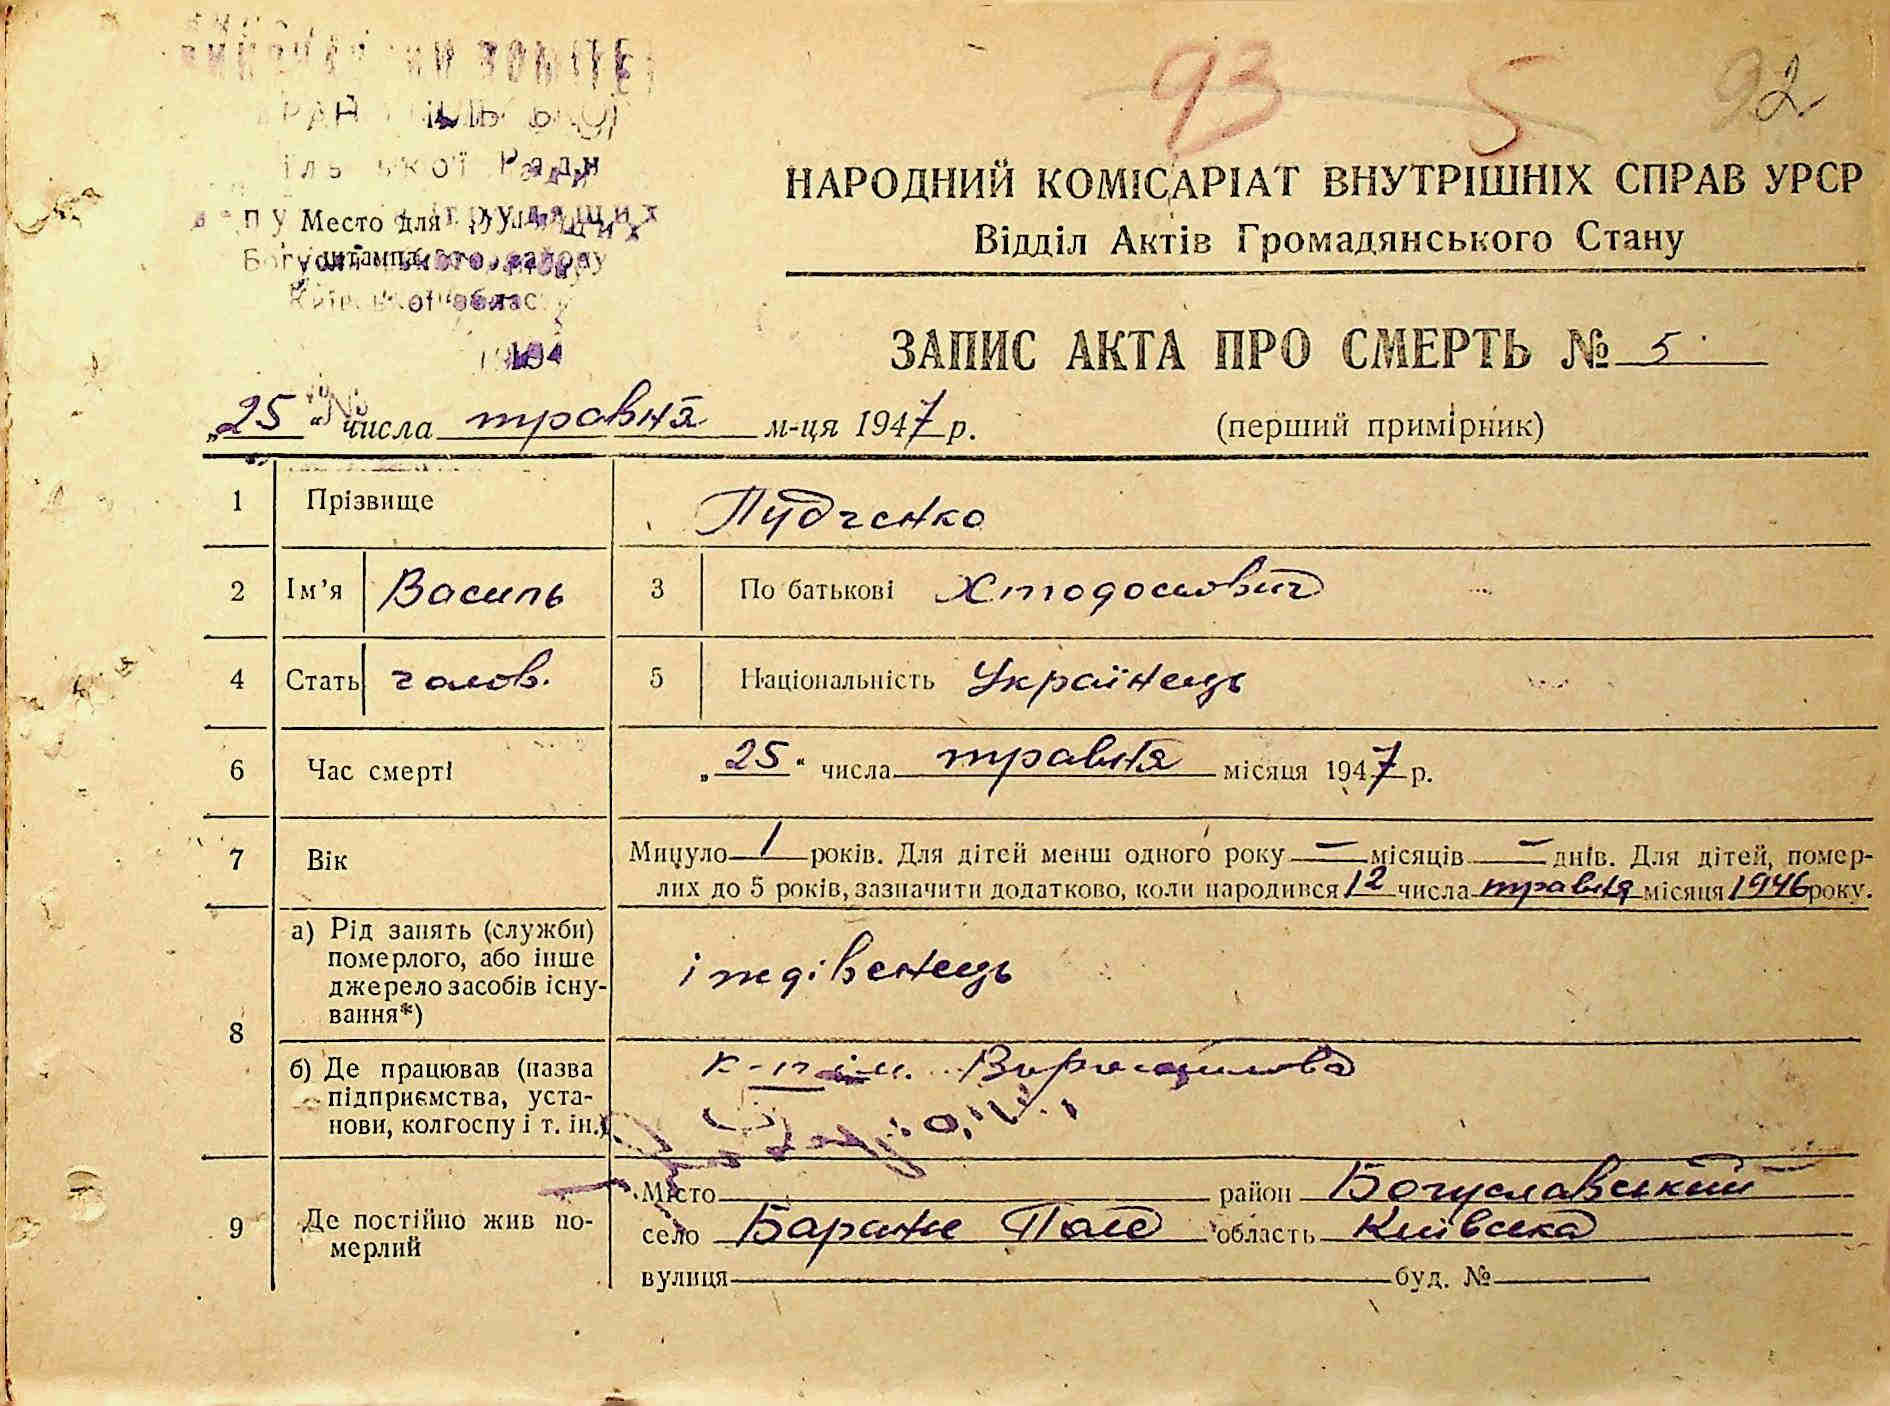 93 5 92
НАРОДНИЙ КОМІСАРІАТ ВНУТРІШНІХ СПРАВ УРСР
Відділ Актів Громадянського Стану
Место для
штампа
ЗАПИС АКТА ПРО СМЕРТЬ № 5
„25“ числа травня м-ця 1947 р. (перший примірник)
1 Прізвище Пудченко
2 Ім’я Василь 3 По батькові Хтодосиович
4 Стать голов. 5 Національність Українець
6 Час смерті „25“ числа травня місяця 1947 р.
7 Вік Минуло 1 років. Для дітей менш одного року — місяців — днів. Для дітей, помер-
лих до 5 років, зазначити додатково, коли народився 12 числа травня місяця 1946 року.
8 а) Рід занять (служби)
померлого, або інше
джерело засобів існу-
вання*) іждівенець
б) Де працював (назва
підприємства, уста-
нови, колгоспу і т. ін.) к-п ім. Ворошилова
9 Де постійно жив по-
мерлий
Місто район Богуславський
село Баране Поле область Київська
вулиця буд. №